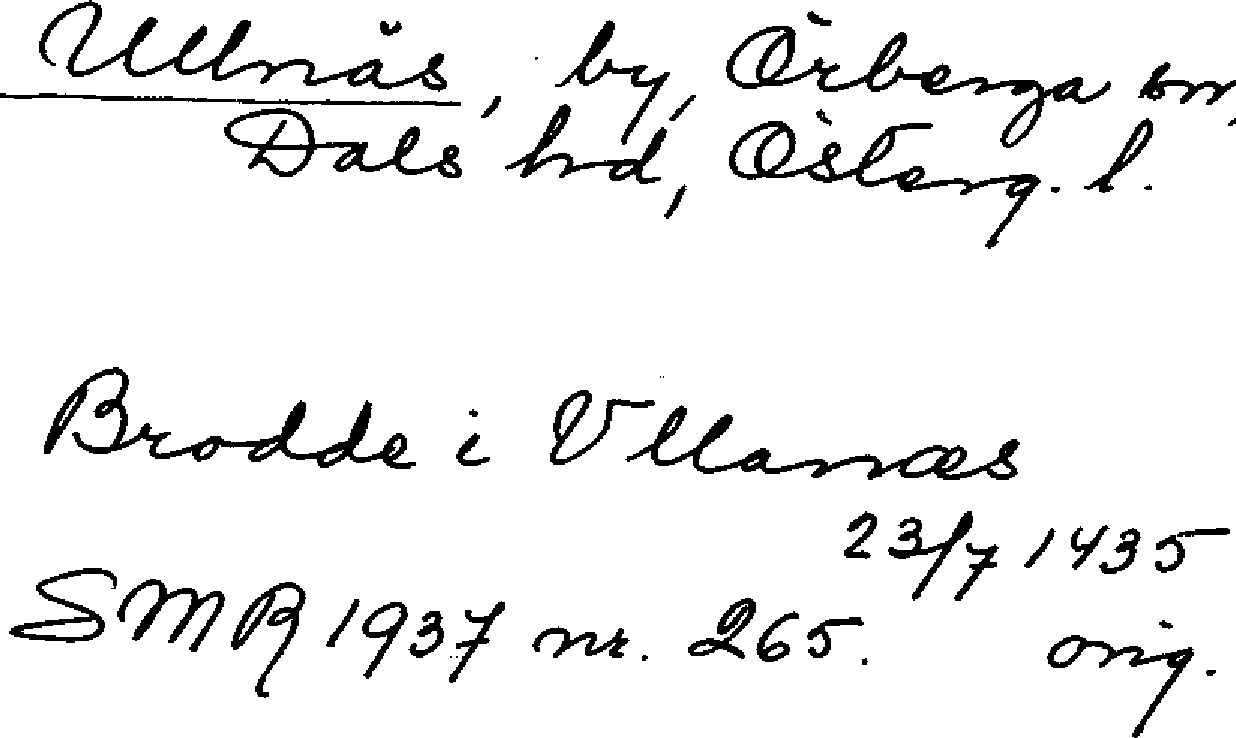 Ullnäs, by, Örberga sn,
Dals hd, Österg. l.
Brodde i Vllanæs
23/7 1435
SMR 1937 nr. 265. orig.